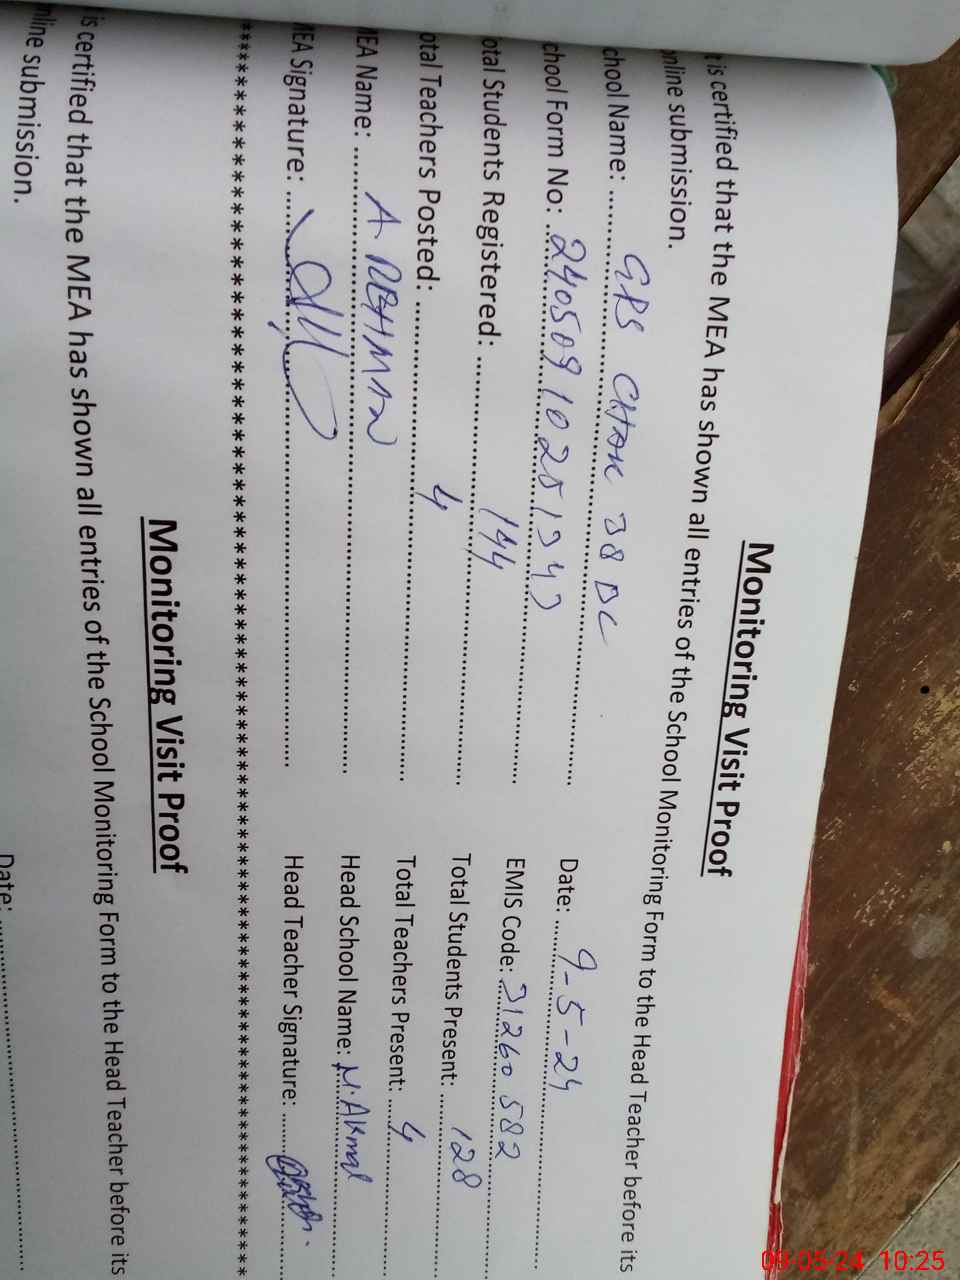 Monitoring Visit Proof
t is certified that the MEA has shown all entries of the School Monitoring Form to the Head Teacher before its
online submission.
chool Name: GPS CHAK 38 BC Date: 9-5-24
chool Form No: EMIS Code: 31260582
otal Students Registered: 144 Total Students Present: 128
otal Teachers Posted: 4 Total Teachers Present: 4
MEA Name: A REHMAN Head School Name: M. Akmal
MEA Signature: Head Teacher Signature:
Monitoring Visit Proof
is certified that the MEA has shown all entries of the School Monitoring Form to the Head Teacher before its
nline submission.
Date:
09-05-24 10:25